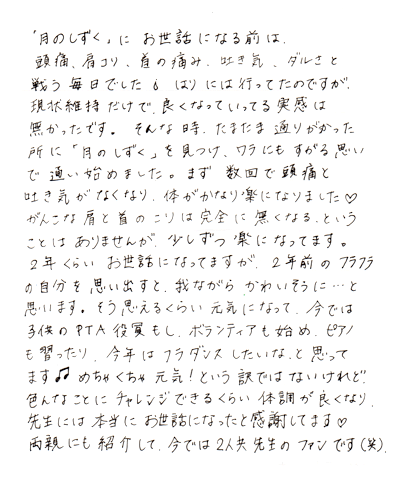 「月のしずく」に お世話になる前は、
頭痛、肩コリ、首の痛み、吐き気、ダルさと
戦う毎日でした💧 はりには行ってたのですが、
現状維持だけで、良くなっていってる実感は
無かったです。そんな時、たまたま通りがかった
所に「月のしずく」を見つけ、ワラにもすがる思い
で通い始めました。まず 数回で頭痛と
吐き気がなくなり、体がかなり楽になりました♡
がんこな肩と首のこりは完全に無くなる、という
ことは ありませんが、少しずつ楽になってます。
2年くらい お世話になってますが、2年前のフラフラ
の自分を思い出すと、我ながら かわいそうに…と
思います。そう思えるくらい 元気になって、今では
子供のPTA役員もし、ボランティアも始め、ピアノ
も習ったり、今年はフラダンスしたいな、と思って
ます♫ めちゃくちゃ元気!という訳ではないけれど、
色んなことにチャレンジできるくらい体調が良くなり、
先生には本当にお世話になったと感謝してます♡
両親にも紹介して、今では2人共 先生のファンです(笑).